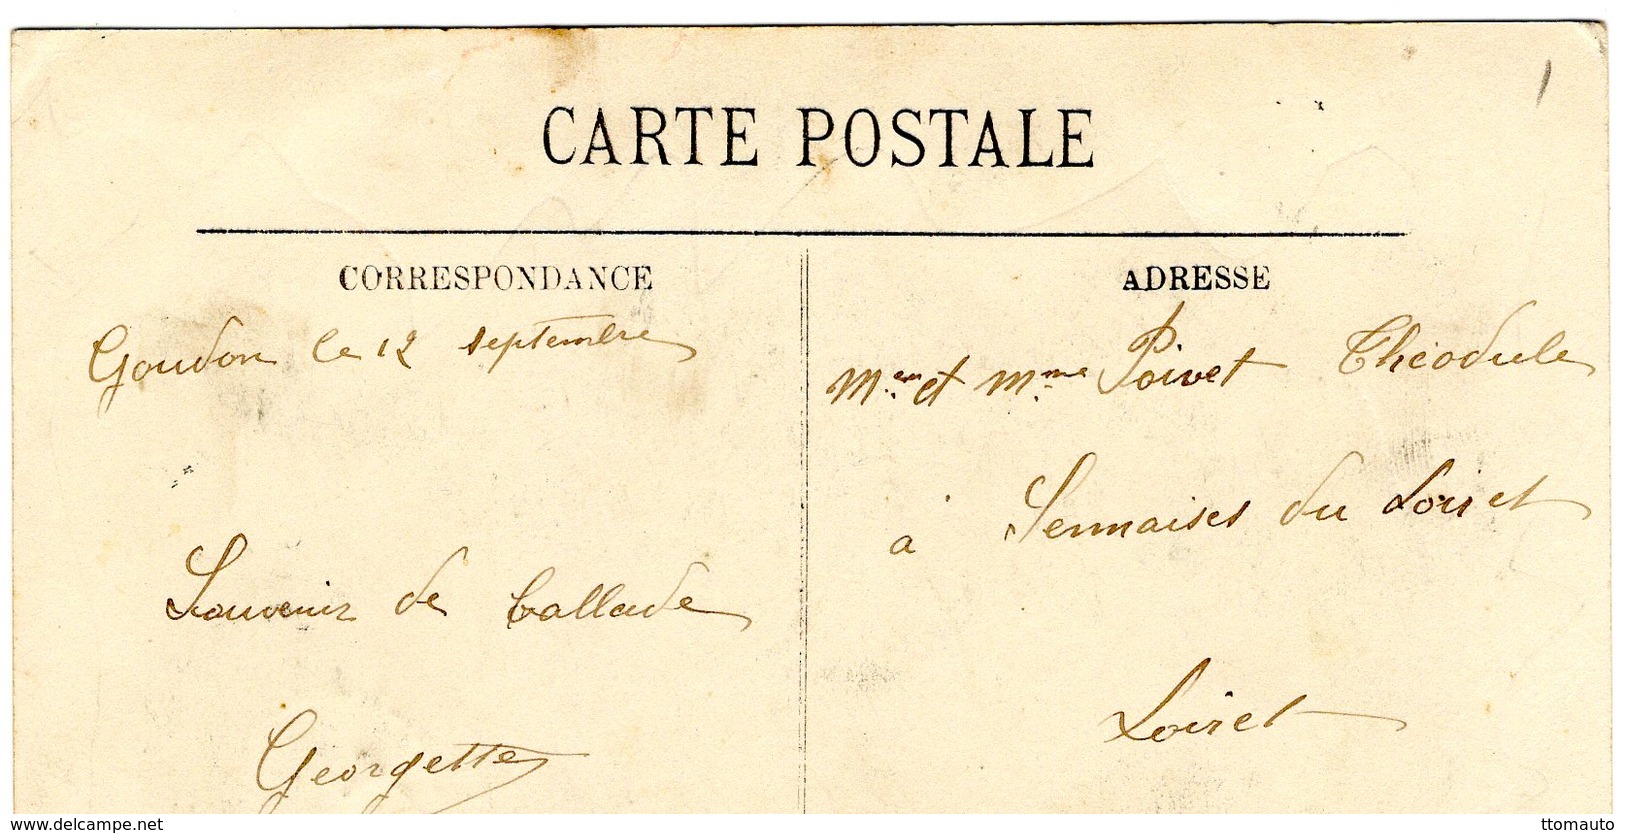 CARTE POSTALE
CORRESPONDANCE
Goudon le 12 septembre
Souvenir de Ballade
Georgette
ADRESSE
Mr et Mme Poivet Théodule
à Sermaises du Loiret
Loiret
www.delcampe.net
ttomauto